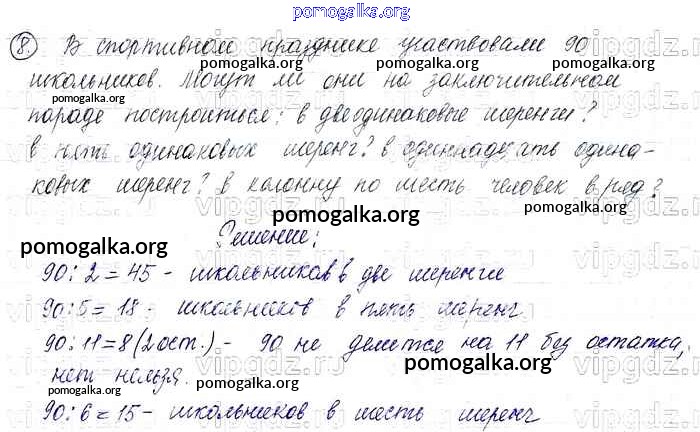 pomogalka.org
8. В спортивном празднике участвовали 90
школьников. Могут ли они на заключительном
pomogalka.org pomogalka.org pomogalka.org
параде построиться: в две одинаковые шеренги?
pomogalka.org pomogalka.org
в пять одинаковых шеренг? в одиннадцать одина-
pomogalka.org
ковых шеренг? в колонну по шесть человек в ряд?
pomogalka.org pomogalka.org
Решение:
pomogalka.org
90:2=45 - школьников в две шеренги
pomogalka.org pomogalka.org
90:5=18 - школьников в пять шеренг
pomogalka.org
90:11=8(2ост.) - 90 не делится на 11 без остатка,
нет нельзя.
pomogalka.org pomogalka.org
90:6=15 - школьников в шесть шеренг
pomogalka.org pomogalka.org